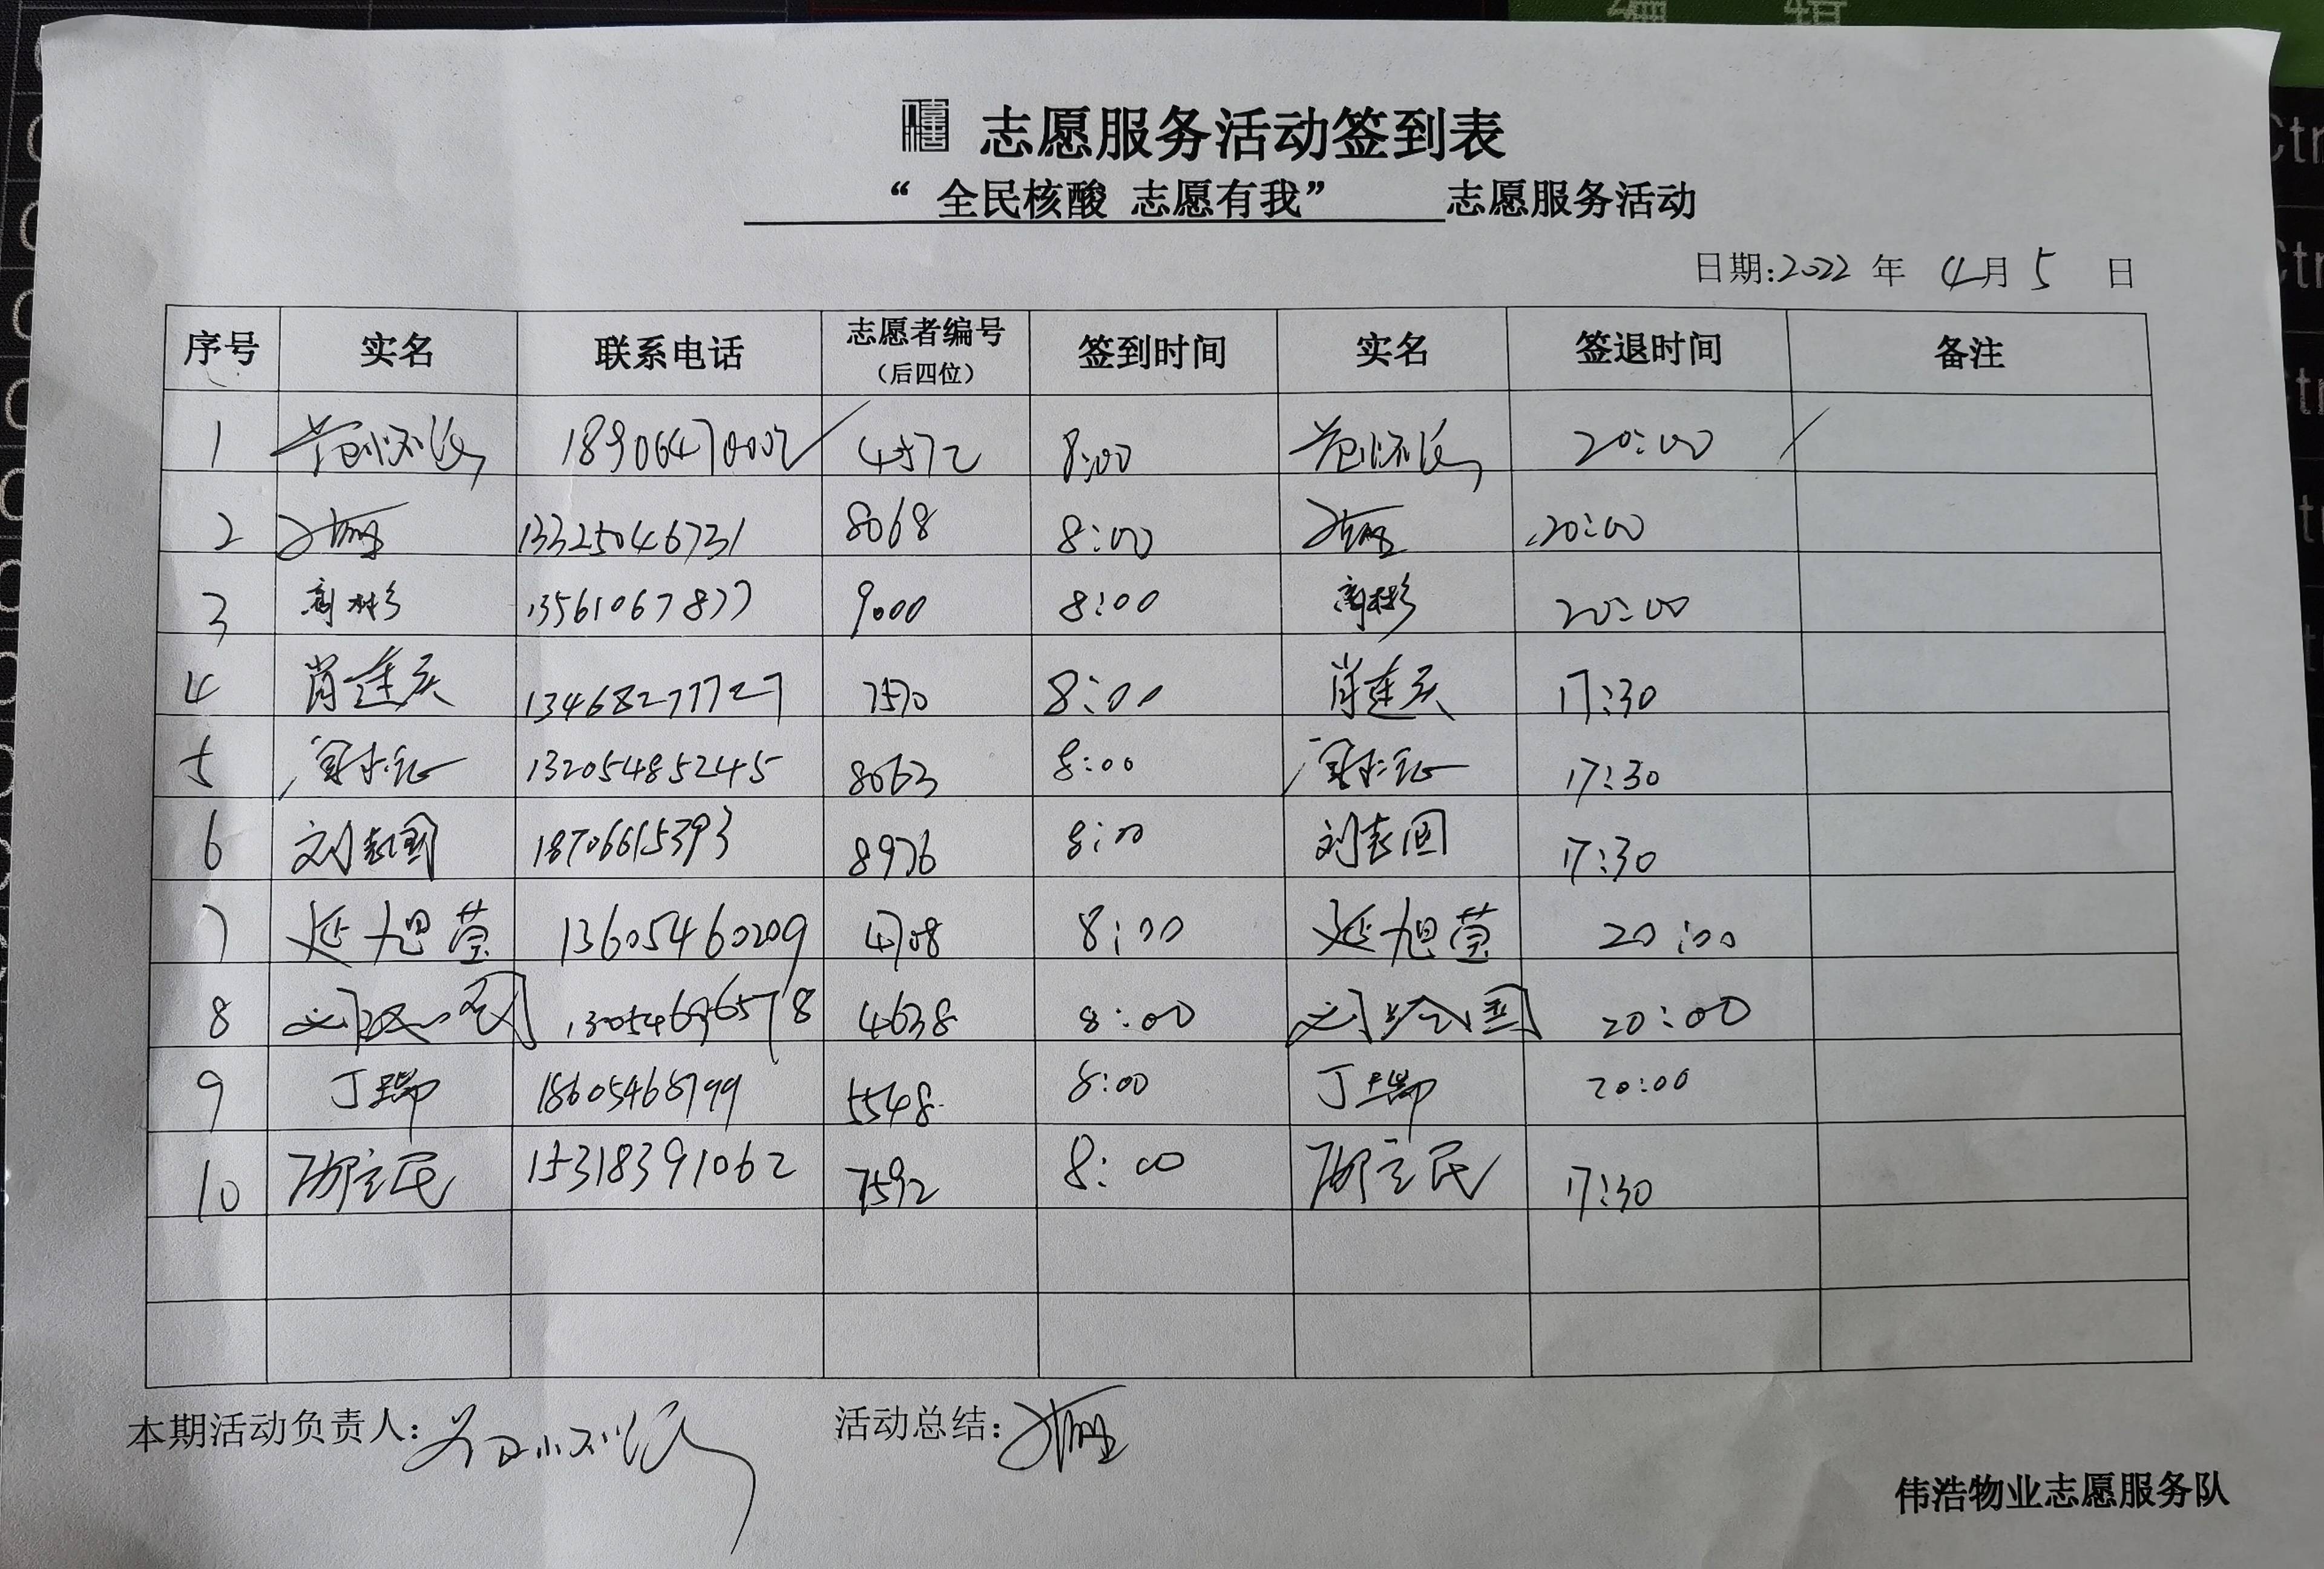 编 辑
志愿服务活动签到表
“ 全民核酸 志愿有我” 志愿服务活动
日期:2022 年 4月 5 日
序号 实名 联系电话 志愿者编号（后四位） 签到时间 实名 签退时间 备注
1 4572 8:00 20:00
2 13325046731 8068 8:00 20:00
3 高彬 13561067877 9000 8:00 高彬 20:00
4 肖连庆 13468277727 7570 8:00 肖连庆 17:30
5 132054852245 8063 8:00 17:30
6 刘志国 18706615393 8976 8:00 刘志国 17:30
7 延旭莹 13605460209 4708 8:00 延旭莹 20:00
8 4638 8:00 20:00
9 丁瑞 5548 8:00 丁瑞 20:00
10 邴立民 15318391062 7592 8:00 邴立民 17:30
本期活动负责人: 活动总结:
伟浩物业志愿服务队